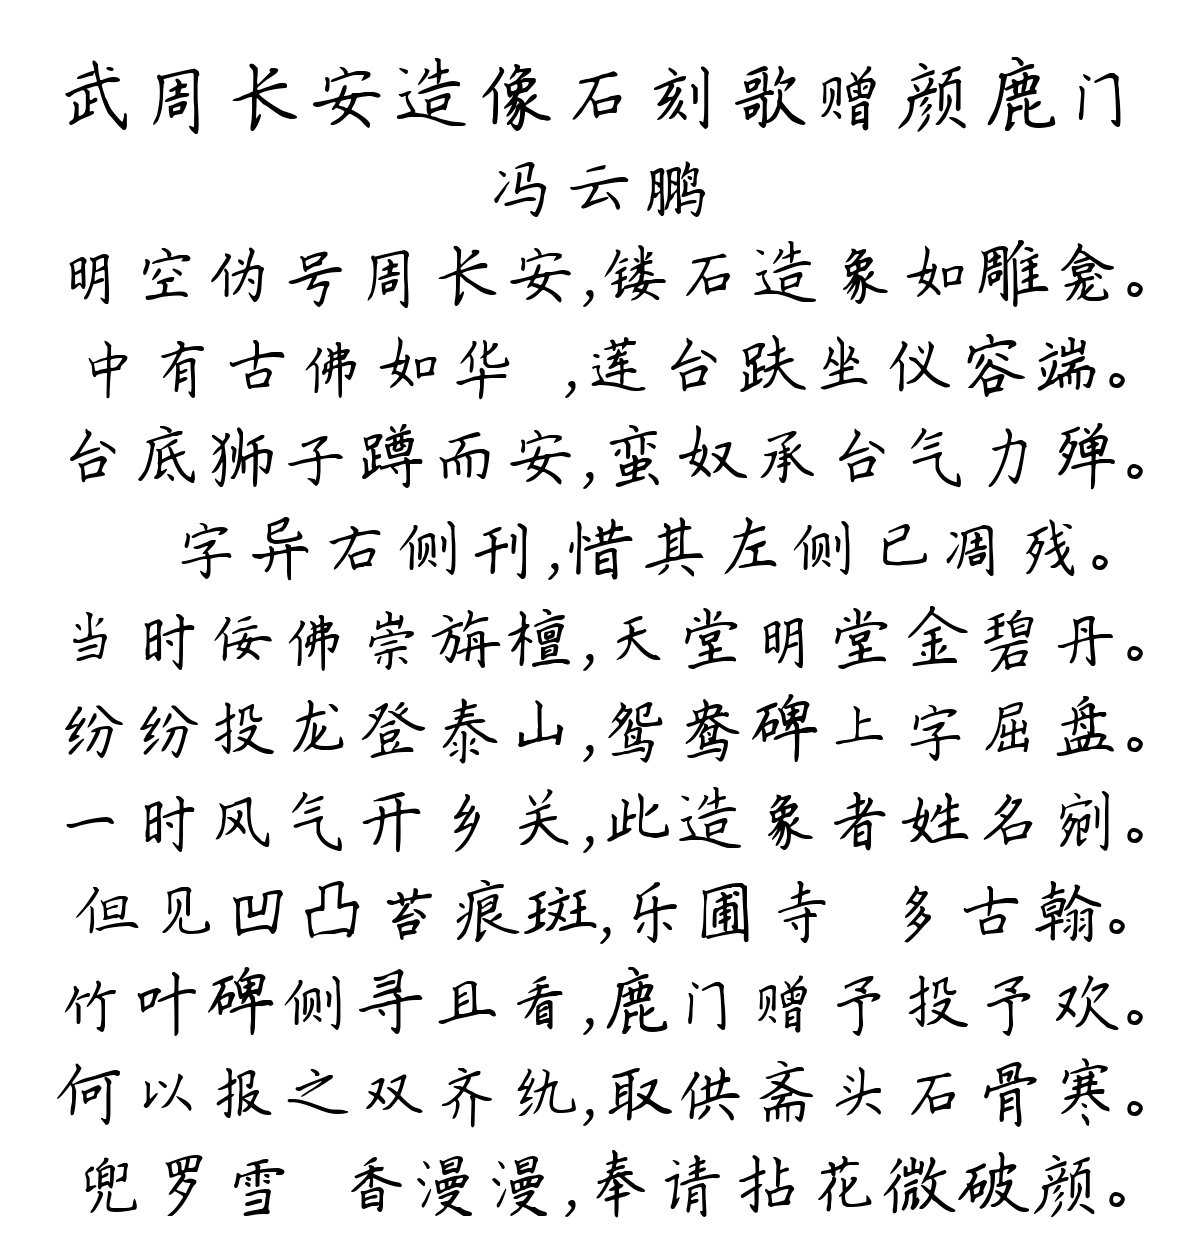 武周长安造像石刻歌赠颜鹿门
冯云鹏
明空伪号周长安,镂石造象如雕龛。
中有古佛如华 ,莲台趺坐仪容端。
台底狮子蹲而安,蛮奴承台气力殚。
字异右侧刊,惜其左侧已凋残。
当时佞佛崇旃檀,天堂明堂金碧丹。
纷纷投龙登泰山,鸳鸯碑上字屈盘。
一时风气开乡关,此造象者姓名剜。
但见凹凸苔痕斑,乐圃寺 多古翰。
竹叶碑侧寻且看,鹿门赠予投予欢。
何以报之双齐纨,取供斋头石骨寒。
兜罗雪 香漫漫,奉请拈花微破颜。